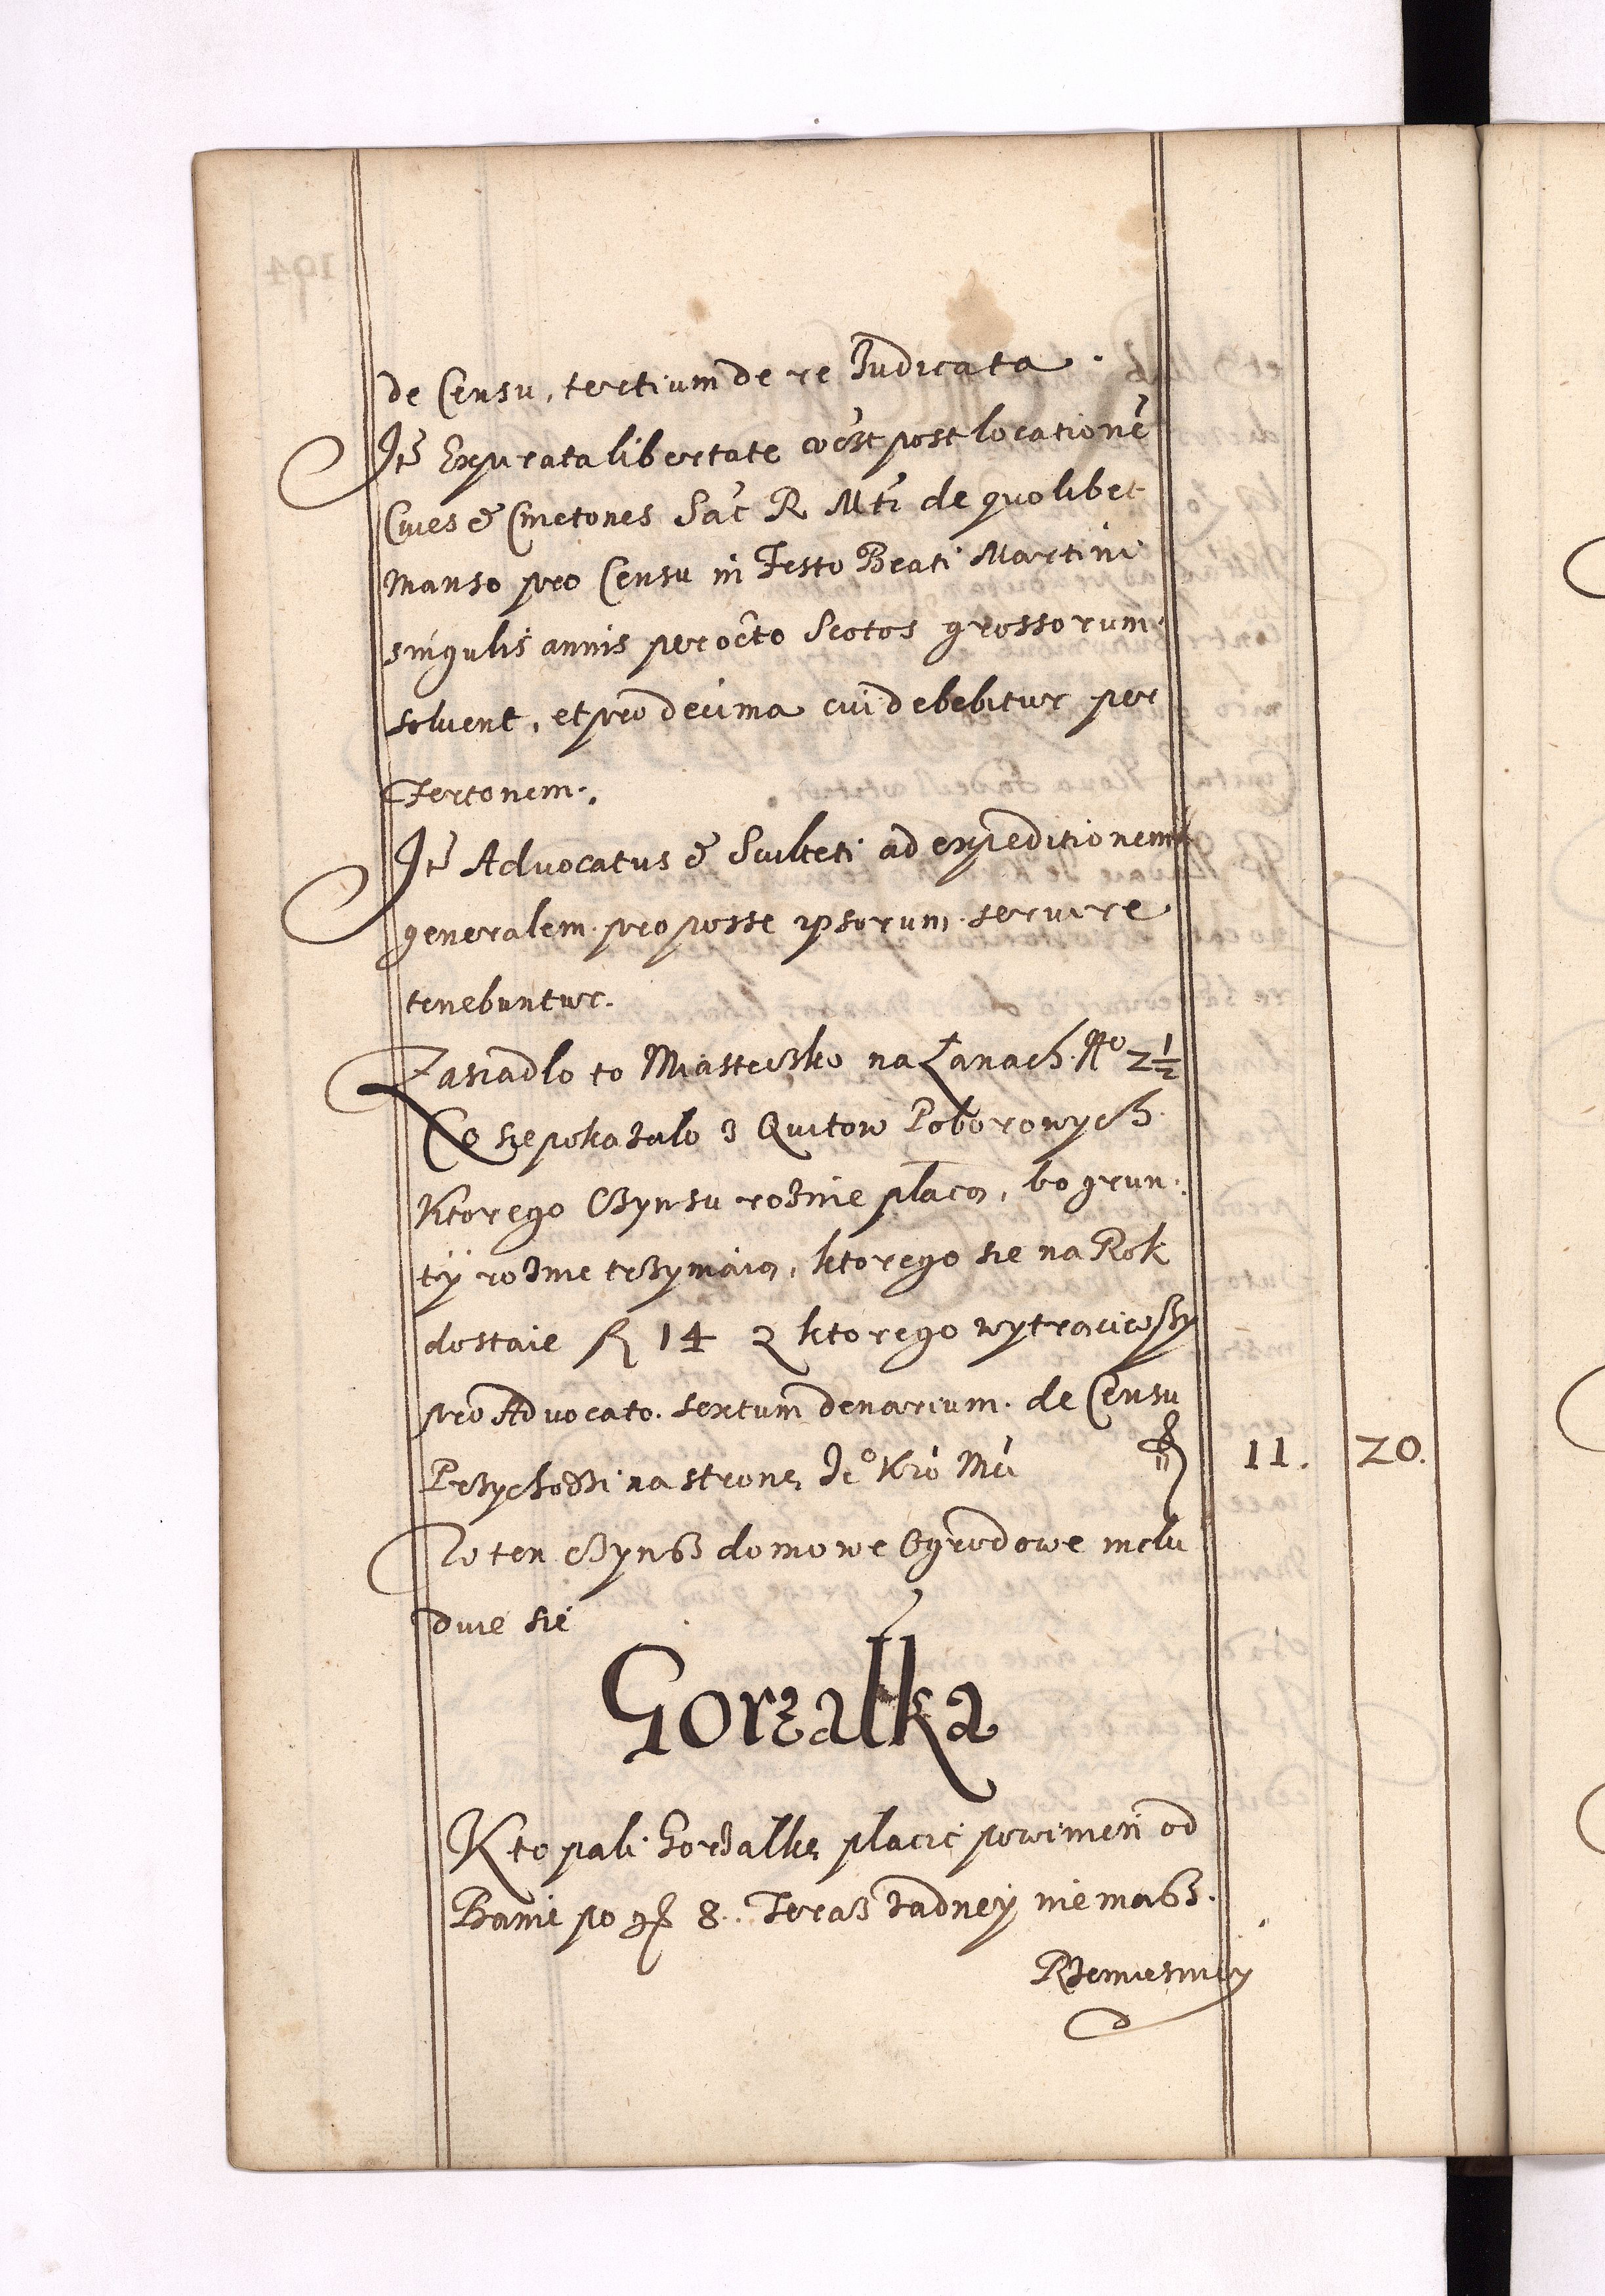 de Censu, tertium de re Iudicata.
Ite Expirata libertate post locatione
Cives & Cmetones Sac R Mti de quolibet
manso pro Censu in Festo Beati Martini
singulis annis per octo Scotos grossorum
solvent, et pro decima cui debebitur per
Fertonem.
Ite Advocatus & Sculteti ad expeditionem
generalem pro posse ipsorum servire
tenebuntur.
Zasiadlo to Miasteczko na Łanach No 2½
Co sie pokazalo z Quitow Poborowych
Ktorego Czynsu roznie placą, bo grun:
ty rozne trzymaią, ktorego sie na Rok
dostaie fl 14 z ktorego wytraciwszy
pro Advocato sextum denarium de Censu
Przychodzi na stronę Je° Kro Mci fl 11. 20.
W ten czynsz domowe Ogrodowe inclu
duie sie
Gorzalka
Kto pali Gorzalkę placic powinien od
Banie po gr 8. Teraz zadney niemasz.
Rzemiesnicy